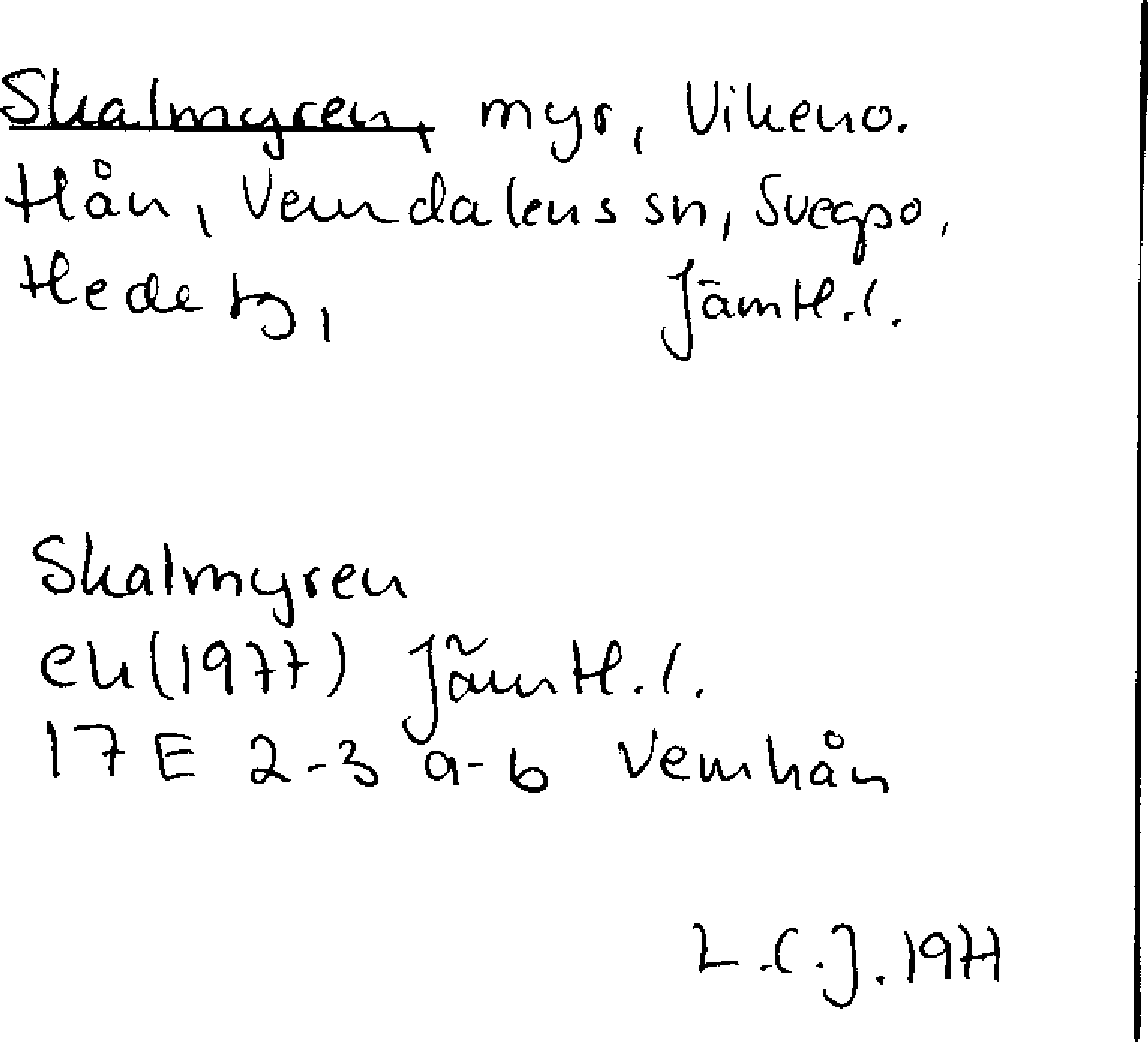 Skalmyren, myr, Vikeno.
Hån, Vemdalens sn, Svegpo,
Hede tg, Jämtl.l.
Skalmyren
ek(1977) Jämtl.l.
17 E 2-3 a-b Vemhån
L.C.J. 1977